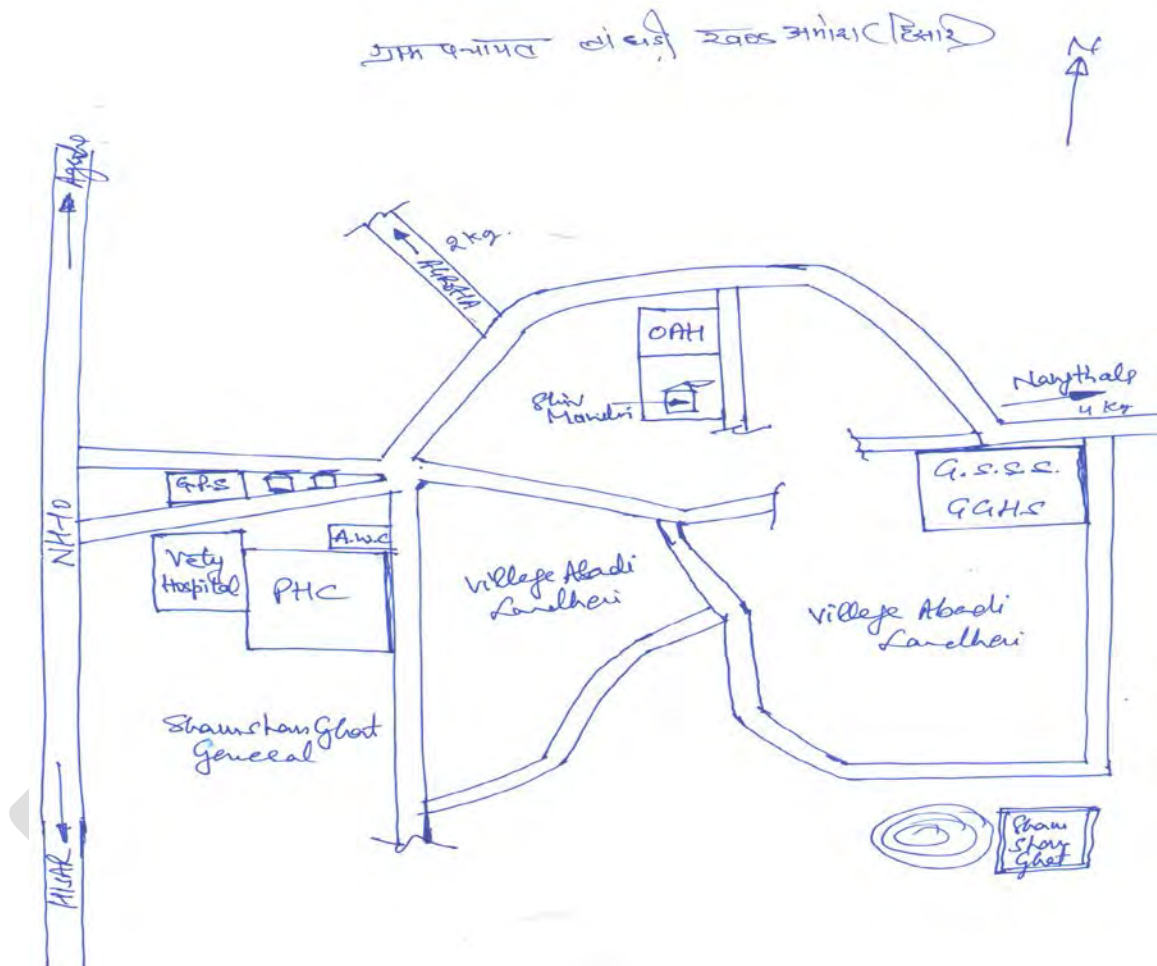 ग्राम पंचायत लांधडी खण्ड अग्रोहा (हिसार)
N
Agroha
2 kg.
AGROHA
OAH
Shiv
Mandri
Nangthala
4 kg
G.S.S.S.
GGHS
G.P.S
NH-10
A.W.C
Vety
Hospital
PHC
Village Abadi
Landheri
Village Abadi
Landheri
Shamshan Ghat
General
HISAR
Sham
Shan
Ghat